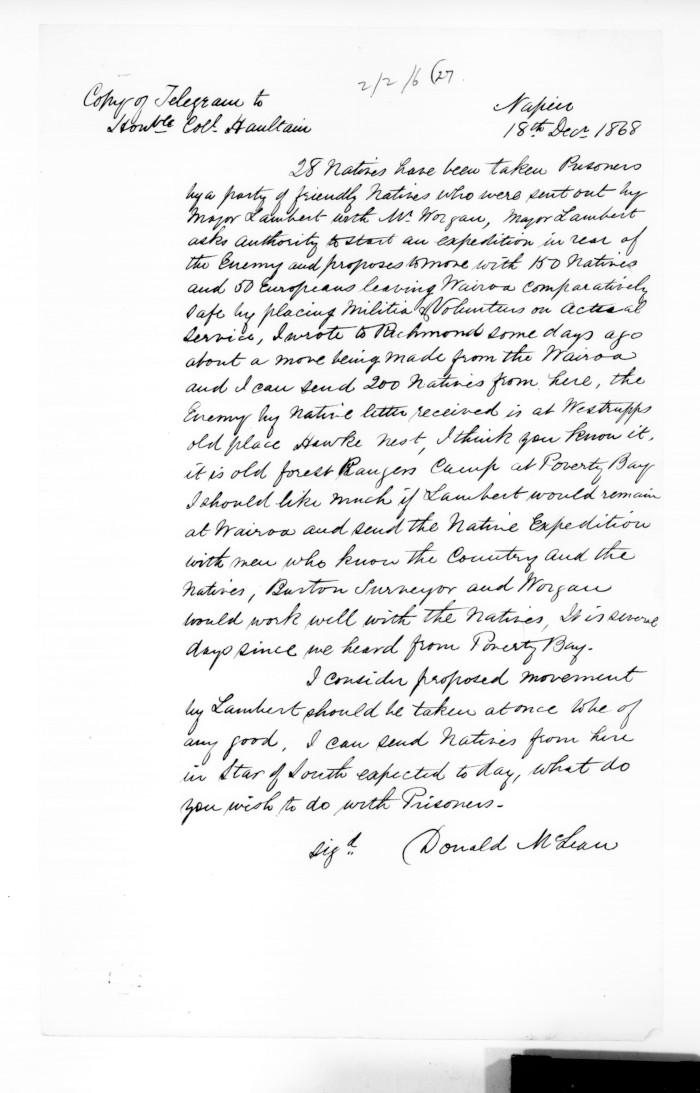 2/2/6 (27.
Copy of Telegram to
Honble Coll. Haultain
Napier
18th Decr 1868
28 Natives have been taken Prisoners
by a party of friendly Natives who were sent out by
Major Lambert with Mr Worgan, Major Lambert
asks authority to start an expedition in rear of
the Enemy and proposes to move with 150 Natives
and 50 Europeans leaving Wairoa comparatively
safe by placing Militia & Volunteers on Actual
service, I wrote to Richmond some days ago
about a move being made from the Wairoa
and I can send 200 Natives from here, the
Enemy by Native letter received is at Westrupps
old place Hawke Nest, I think you know it,
it is old forest Rangers Camp at Poverty Bay
I should like much if Lambert would remain
at Wairoa and send the Native Expedition
with men who know the Country and the
Natives, Burton Surveyor and Worgan
would work well with the Natives, It is several
days since we heard from Poverty Bay.
I consider proposed movement
by Lambert should be taken at once to be of
any good, I can send Natives from here
in Star of South expected to day, what do
you wish to do with Prisoners.
sigd (Donald McLean